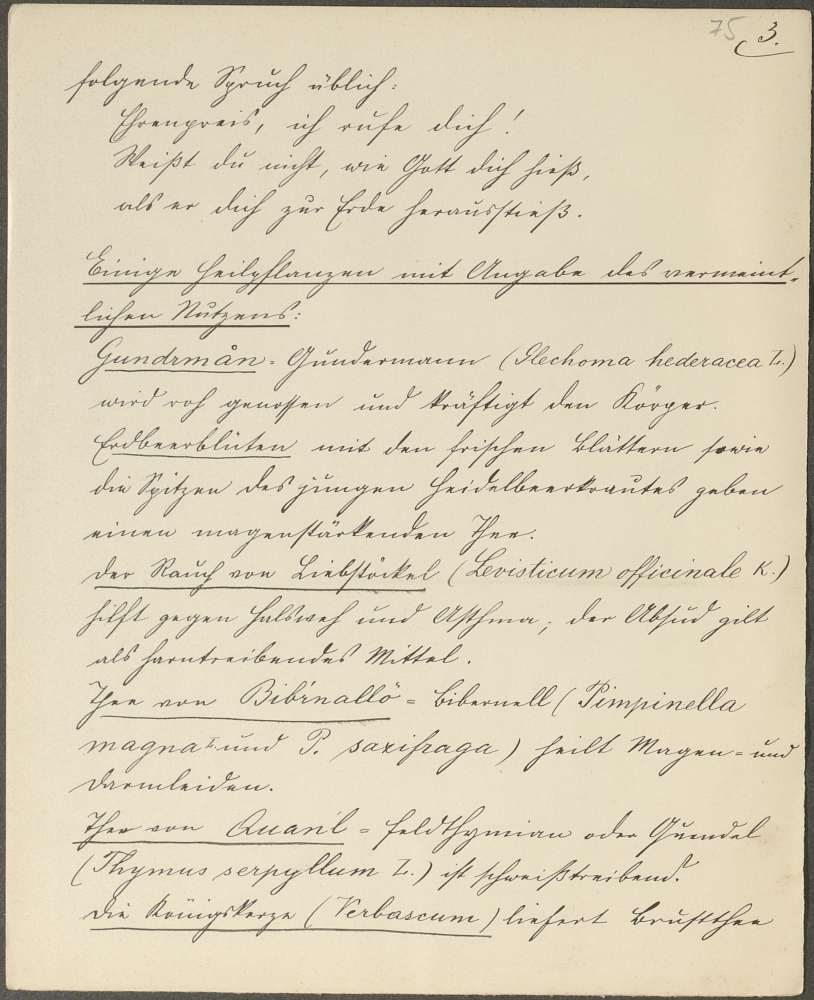 75 3.
folgende Spruch üblich:
Ehrenpreis, ich rufe dich!
Weißt du nicht, wie Gott dich hieß,
als er dich zur Erde herausstieß.
Einige Heilpflanzen mit Angabe des vermeint-
lichen Nutzens:
Gundrmån = Gundermann (Glechoma hederacea L.)
wird roh genossen und kräftigt den Körper.
Erdbeerblüten mit den frischen Blättern sowie
die Spitzen des jungen Heidelbeerkrautes geben
einen magenstärkenden Thee.
Der Rauch von Liebstöckel (Levisticum officinale K.)
hilft gegen Halsweh und Asthma; der Absud gilt
als harntreibendes Mittel.
Thee von Bibìnallö = Bibernell (Pimpinella
magna L. und P. saxifraga) heilt Magen- und
Darmleiden.
Thee von Quanl = Feldthymian oder Quendel
(Thymus serpyllum L.) ist schweißtreibend.
Die Königskerze (Verbascum) liefert Brustthee